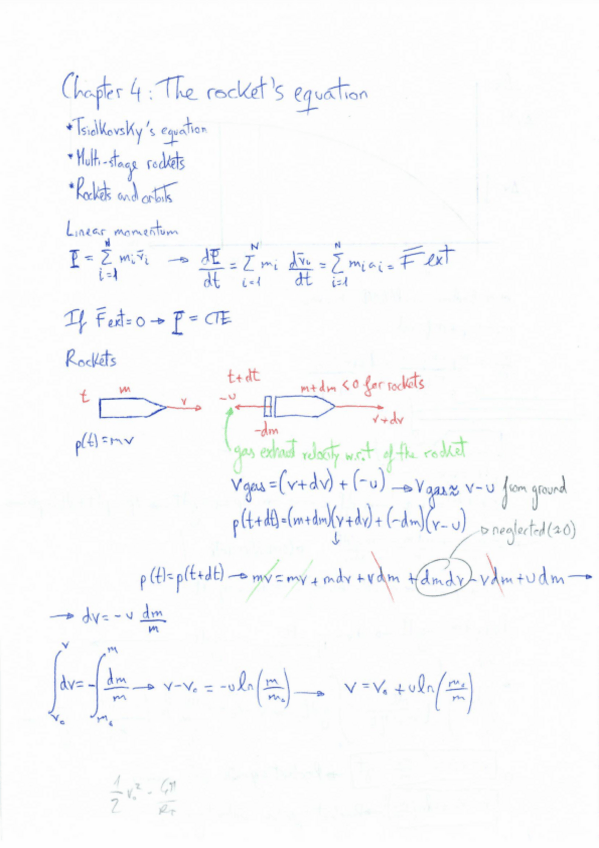 Chapter 4: The rocket's equation
•Tsiolkovsky's equation
•Multi-stage rockets
•Rockets and orbits
Linear momentum
P̄ = Σ_{i=1}^{N} m_i v̄_i → dP̄/dt = Σ_{i=1}^{N} m_i dv̄_i/dt = Σ_{i=1}^{N} m_i a_i = F̄ext
If F̄ext=0 → P̄ = CTE
Rockets
t m v
t+dt -u -dm m+dm <0 for rockets v+dv
p(t)=mv
gas exhaust velocity w.r.t of the rocket
Vgas=(v+dv)+(-u) → Vgas≈ v-u from ground
p(t+dt)=(m+dm)(v+dv)+(-dm)(v-u)
neglected(20)
p(t)=p(t+dt) → mv=mv+mdv+vdm+dmdv-vdm+udm →
→ dv=-u dm/m
∫_{v₀}^{v} dv=-∫_{m₀}^{m} dm/m → v-v₀ = -u ln(m/m₀) → v=v₀+u ln(m₀/m)
1/2 v₀² - GM/R_T